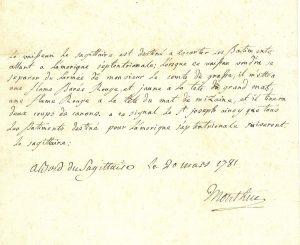 Le vaisseau le sagittaire est destiné a escorter les Batiments
allant a Lamerique septentrionale; Lorsque ce vaisseau voudra se
separer de Larmée de monsieur le comte de grasse, il mettra
une flame Barée Rouge, et jaune a la tete du grand mat,
une flame Rouge a la tete du mat de mizaine, et il tirera
deux coups de canons, a ce signal le St joseph ainsy que tous
les batiments destiné pour Lamerique septentrionale suiveront
le sagittaire;
A Bord du Sagittaire Le 20 mars 1781